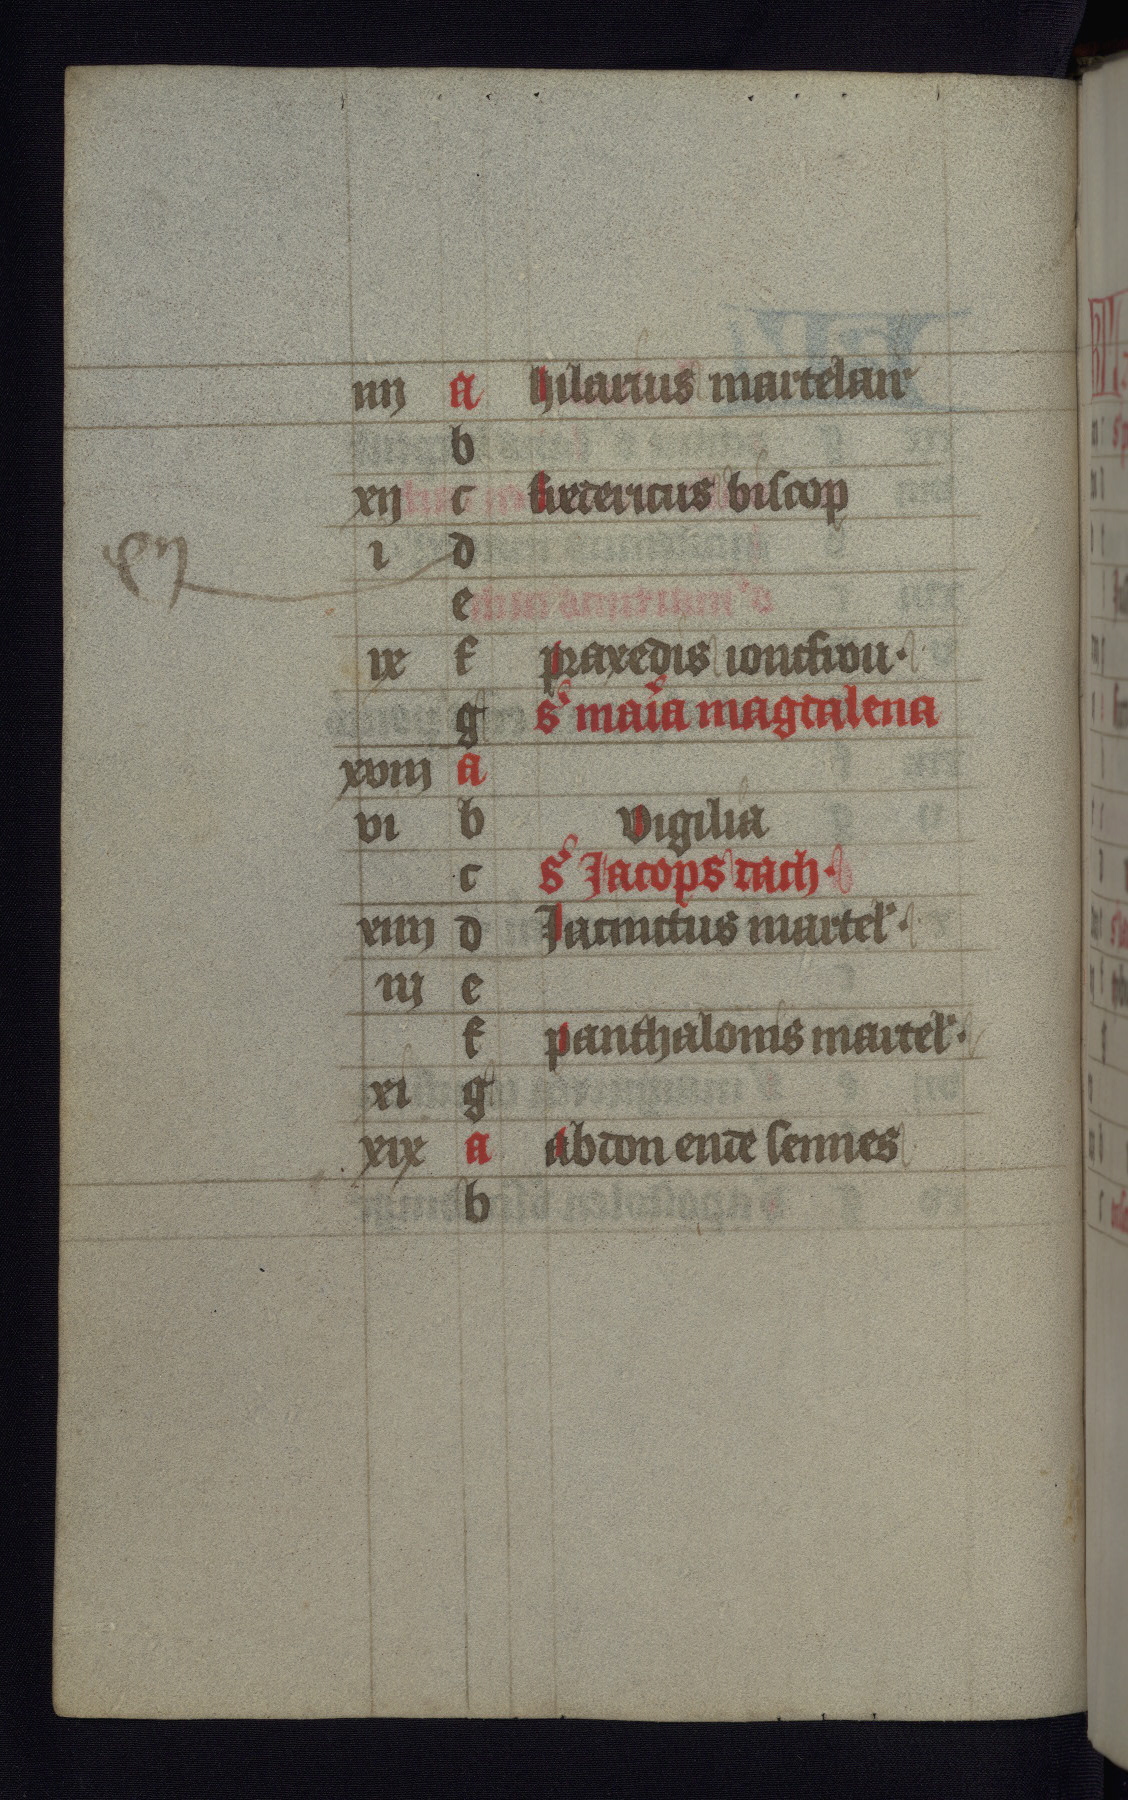 iiij a hilarius martelair
b
xij c fredericus biscop
i d
e
ix f praxedis ioncfrou·
g s' maria magdalena
xviij a
vi b vigilia
c s' Jacops dach·
xiiij d Jacinctus martel'·
iij e
f panthalonis martel'·
xi g
xix a abdon ende sennes
b